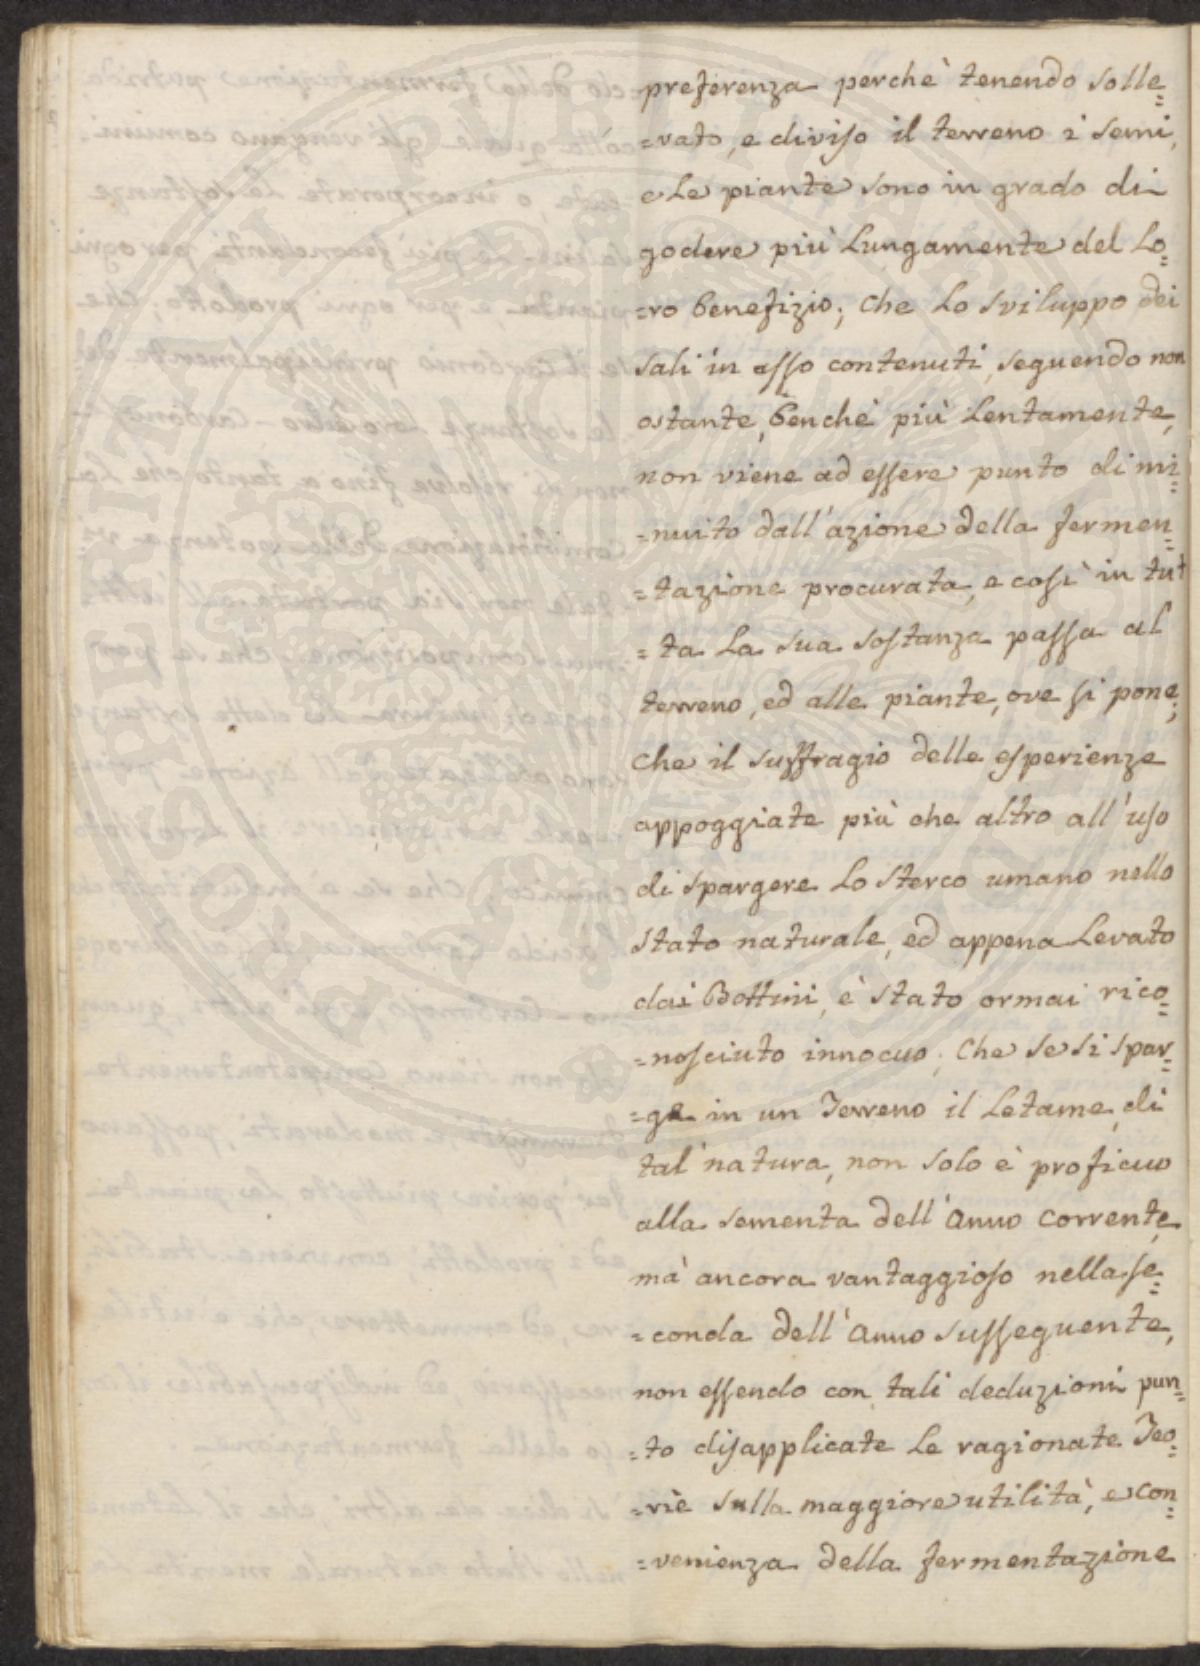 preferenza perchè tenendo solle=
=vato, e diviso il terreno i semi,
e Le piante sono in grado di
godere più Lungamente del Lo=
=ro benefizio; che Lo sviluppo dei
sali in esso contenuti, seguendo non
ostante, benchè più Lentamente,
non viene ad essere punto dimi=
=nuito dall'azione della fermen=
=tazione procurata, e così in tut
=ta La sua sostanza passa al
terreno, ed alle piante, ove si pone;
che il suffragio delle esperienze
appoggiate più che altro all'uso
di spargere Lo sterco umano nello
stato naturale, ed appena Levato
dai Bottini, è stato ormai rico=
=nosciuto innocuo; Che se si spar=
=ge in un Terreno il Letame, di
tal natura, non solo è proficuo
alla sementa dell'Anno corrente,
mà ancora vantaggioso nella se=
=conda dell'Anno susseguente,
non essendo con tali deduzioni pun=
=to disapplicate Le ragionate Teo=
=rie sulla maggiore utilità, e con=
=venienza della fermentazione